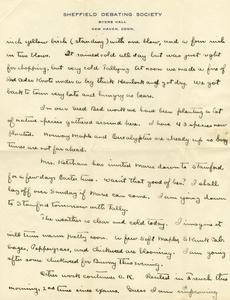 SHEFFIELD DEBATING SOCIETY
BYERS HALL
NEW HAVEN, CONN.
rich yellow birch (standing) with one blow; and a four inch
in two blows. It rained cold all day but was just right
for chopping, but very cold tallying. At noon we made a fire of
Red Cedar Knots under a big thick Hemlock and got dry. We got
back to town very late and hungry as bears.
In our Seed Bed work we have been planting a lot
of native species gathered around here. I have 43 species now
planted. Norway Maple and Eucalyptus are already up so busy
times are not far ahead.
Mrs. has invited Marie down to Stamford
for a few days Easter time. Wasn't that good of her? I shall
lay off over Sunday if Marie can come. I am going down
to Stamford tomorrow with Tally.
The weather is clear and cold today. I imagine it
will turn warm pretty soon. A few Soft Maples, Skunk Cab-
bages, Pepperidges, and chickweed are blooming. I am going
after some chickweed for Bunny this evening.
Other work continues O.K. Recited in French this
morning, 2nd time since exams. Guess I am improving